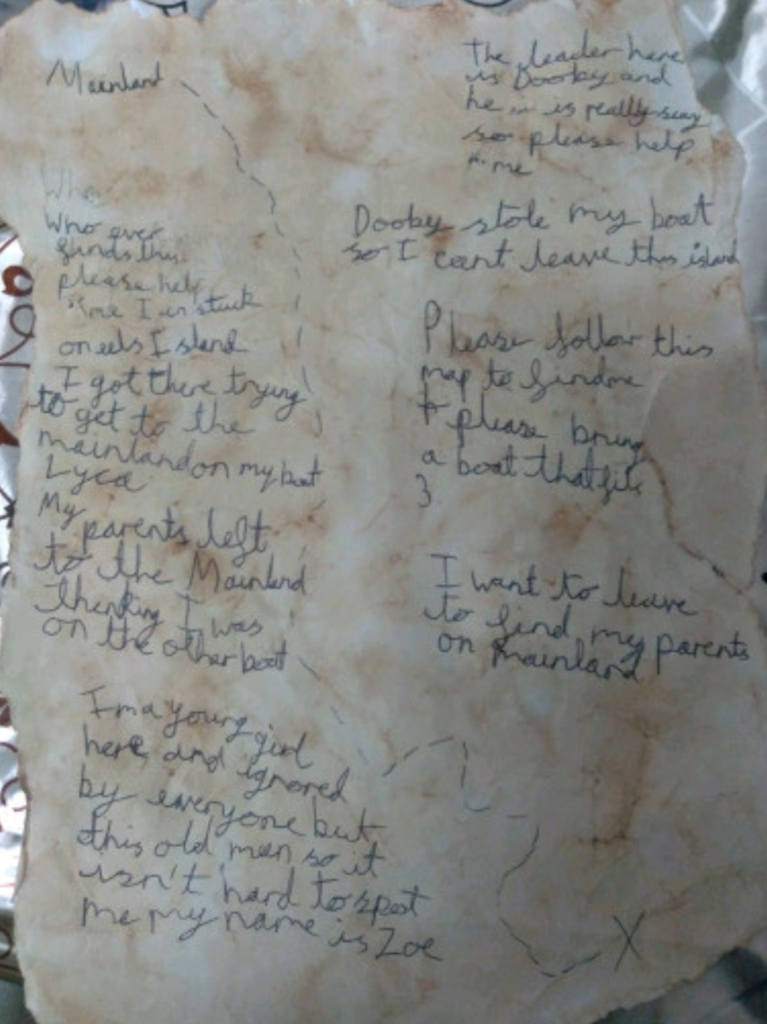 Mainland
The leader here
is Dooby and
he is really scary
so please help
me
Who
Who ever
finds this
please help
me I in stuck
on eels Island
I got there trying
to get to the
mainland on my boat
Lyca
My
parents left
to the Mainland
thinking I was
on the other boat
I'm a young girl
here and ignored
by everyone but
this old man so it
isn't hard to spot
me my name is Zoe
Dooby stole my boat
so I cant leave this island
Please follow this
map to find me
+ please bring
a boat that fits
3
I want to leave
to find my parents
on mainland
X